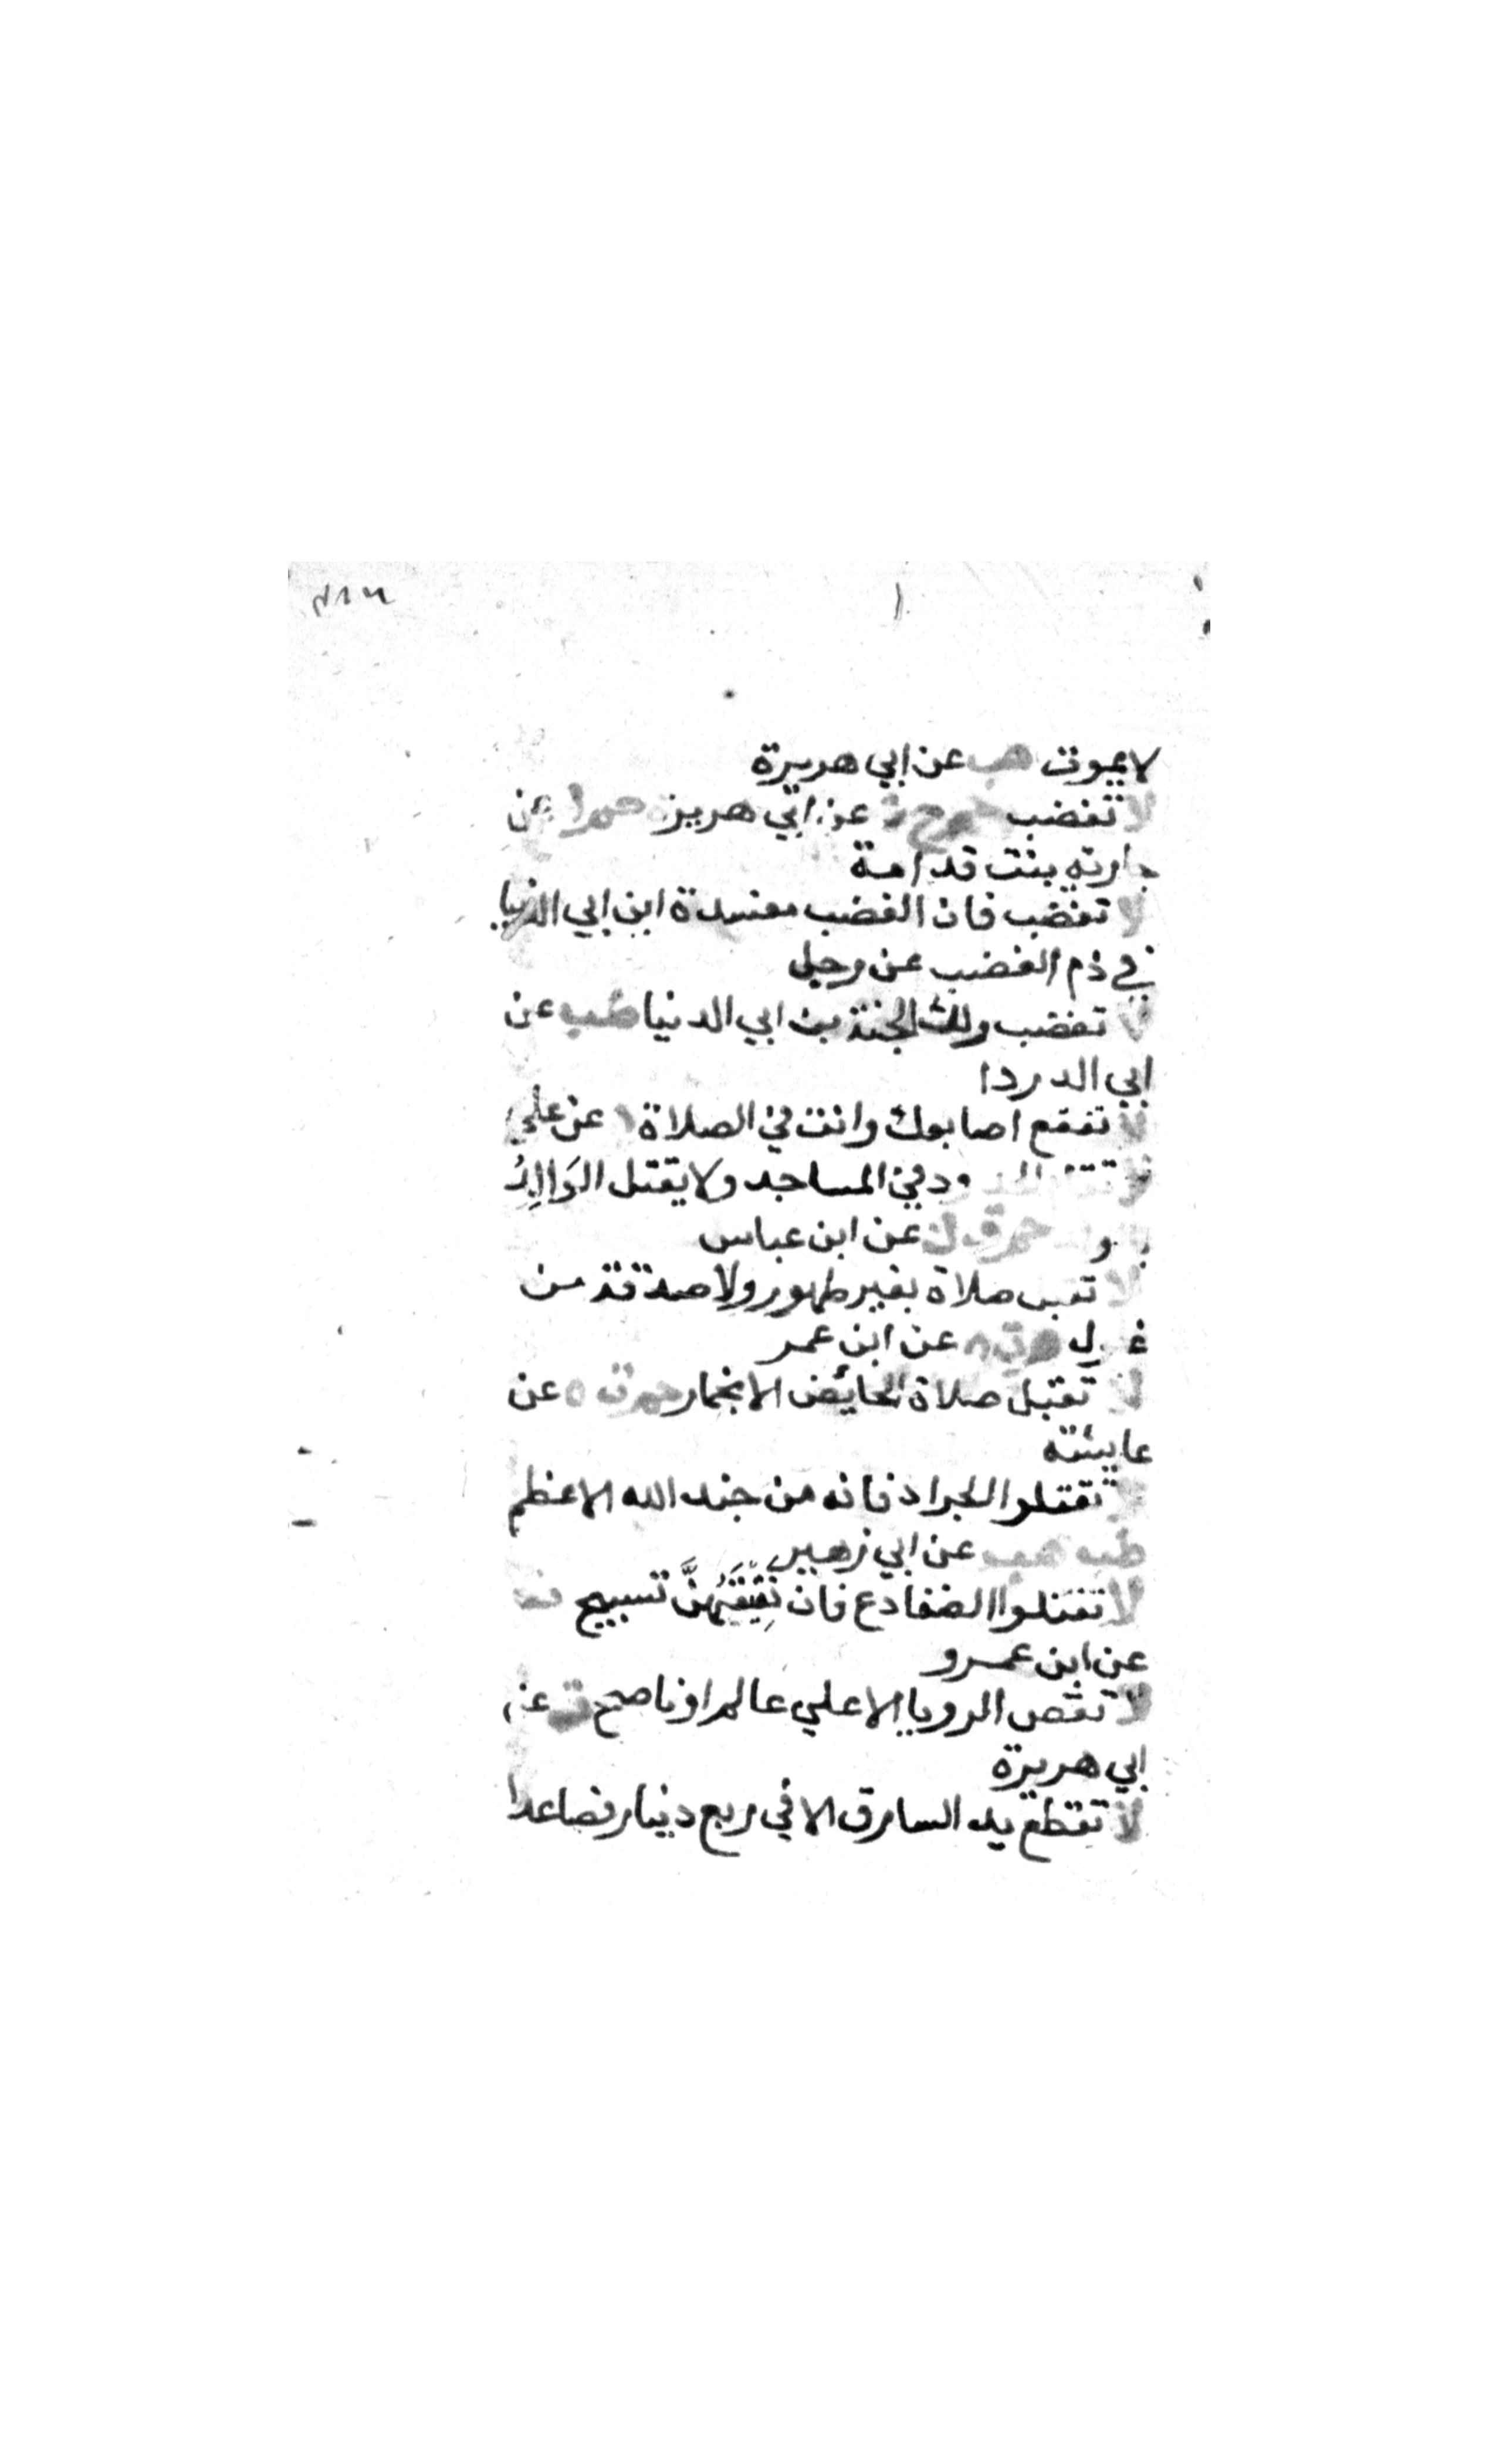 لا يموت هب عن ابي هريرة
لا تغضب حم خ ت عن ابي هريرة حم ك عن
جارته بنت قدامة
لا تغضب فان الغضب مفسدة ابن ابي الدنيا
في ذم الغضب عن رجل
لا تغضب ولك الجنة بن ابي الدنيا طب عن
ابي الدردا
لا تفقع اصابعك وانت في الصلاة ه عن علي
لا ود في المساجد ولا يقتل الوَالِدُ
حم ت ك عن ابن عباس
لا تقبل صلاة بغير طهور ولا صدقة من
غلول م ت ه عن ابن عمر
لا تقبل صلاة الحايض الا بخمار حم ت ه عن
عايشة
لا تقتلوا الجراد فانه من جند الله الاعظم
طب هب عن ابي زهير
لا تقتلوا الضفادع فان نَقِيقَهُنَّ تسبيح ن
عن ابن عمرو
لا تقص الرويا الا علي عالم او ناصح ت عن
ابي هريرة
لا تقطع يد السارق الا في ربع دينار فصاعدا